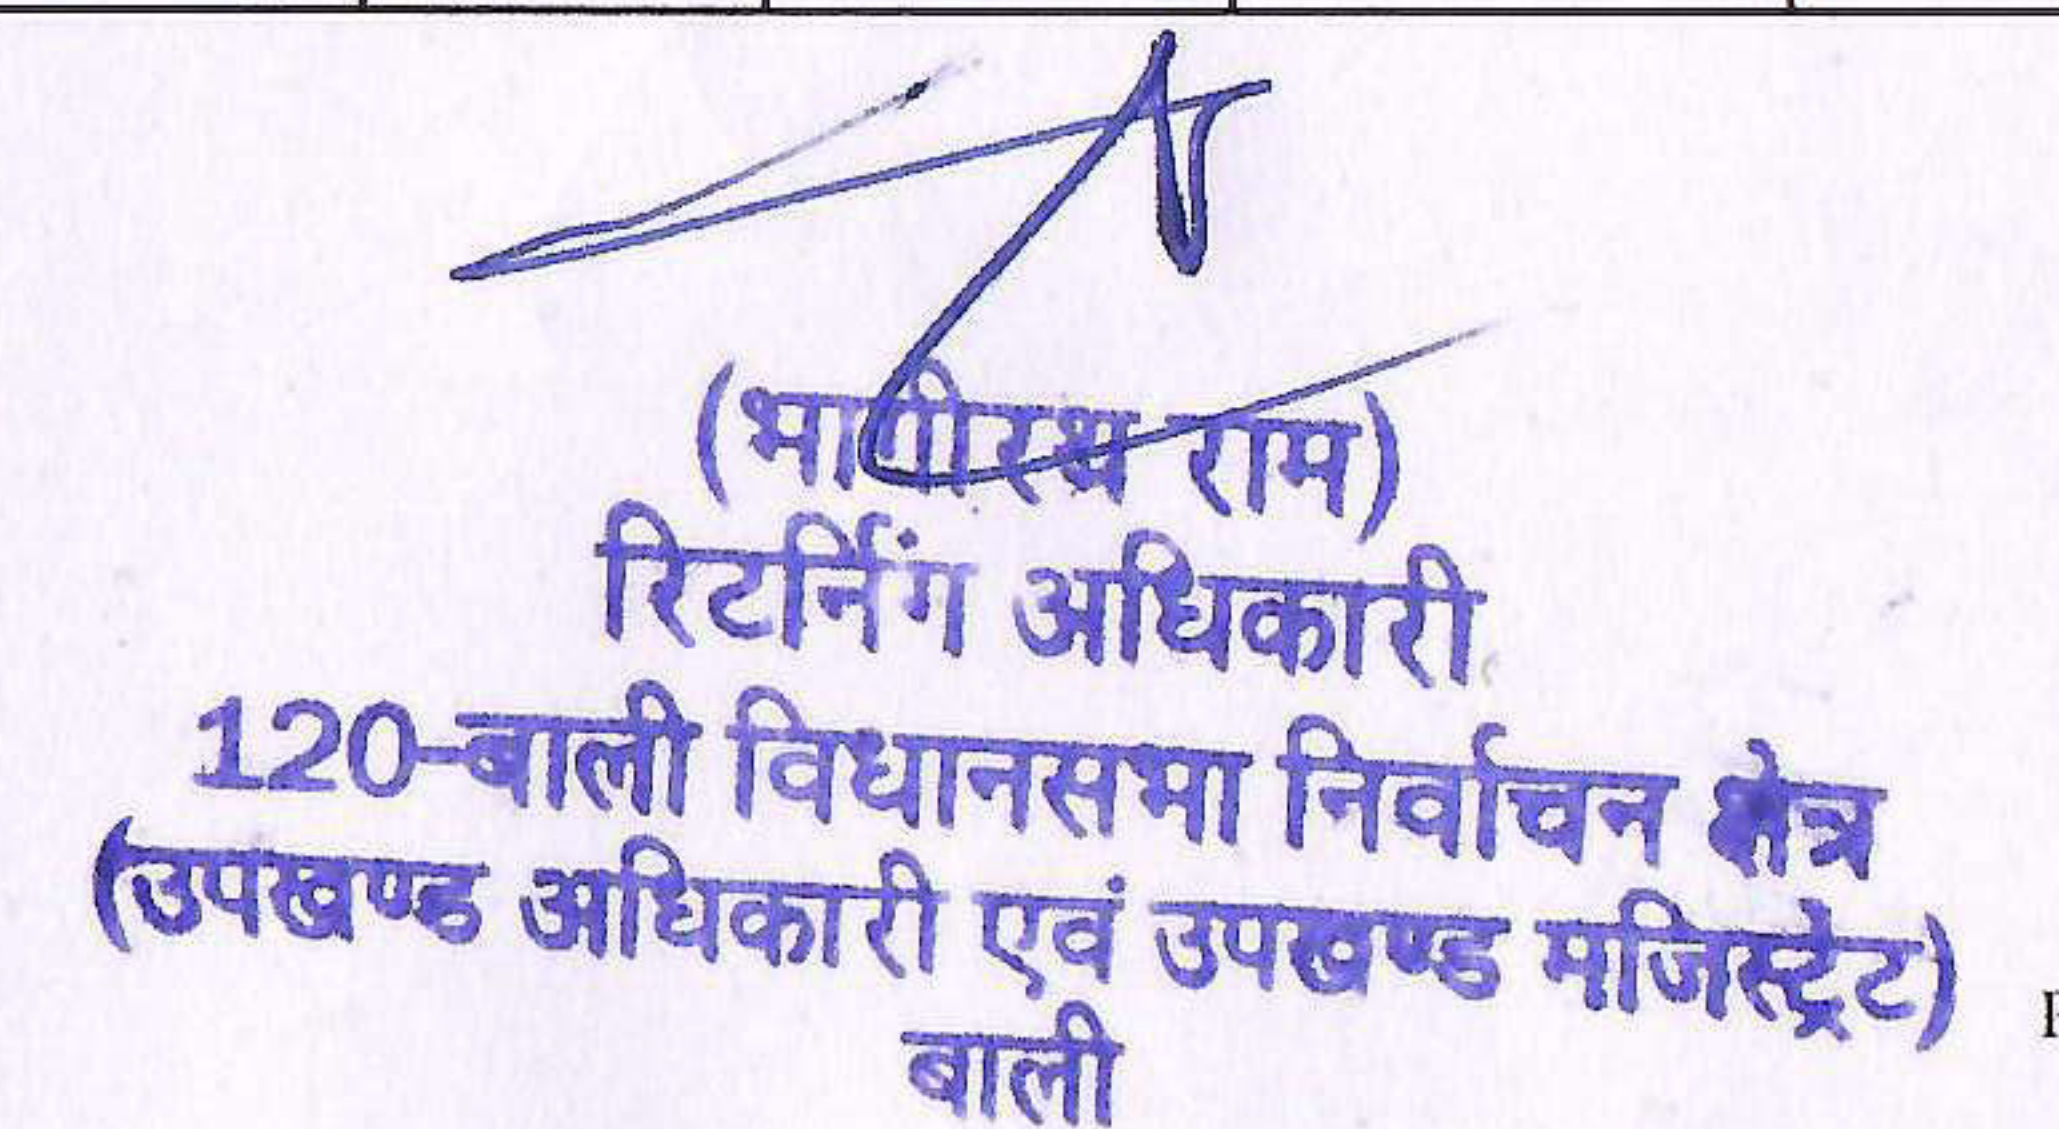 (भागीरथ राम)
रिटर्निंग अधिकारी
120-बाली विधानसभा निर्वाचन क्षेत्र
(उपखण्ड अधिकारी एवं उपखण्ड मजिस्ट्रेट)
बाली